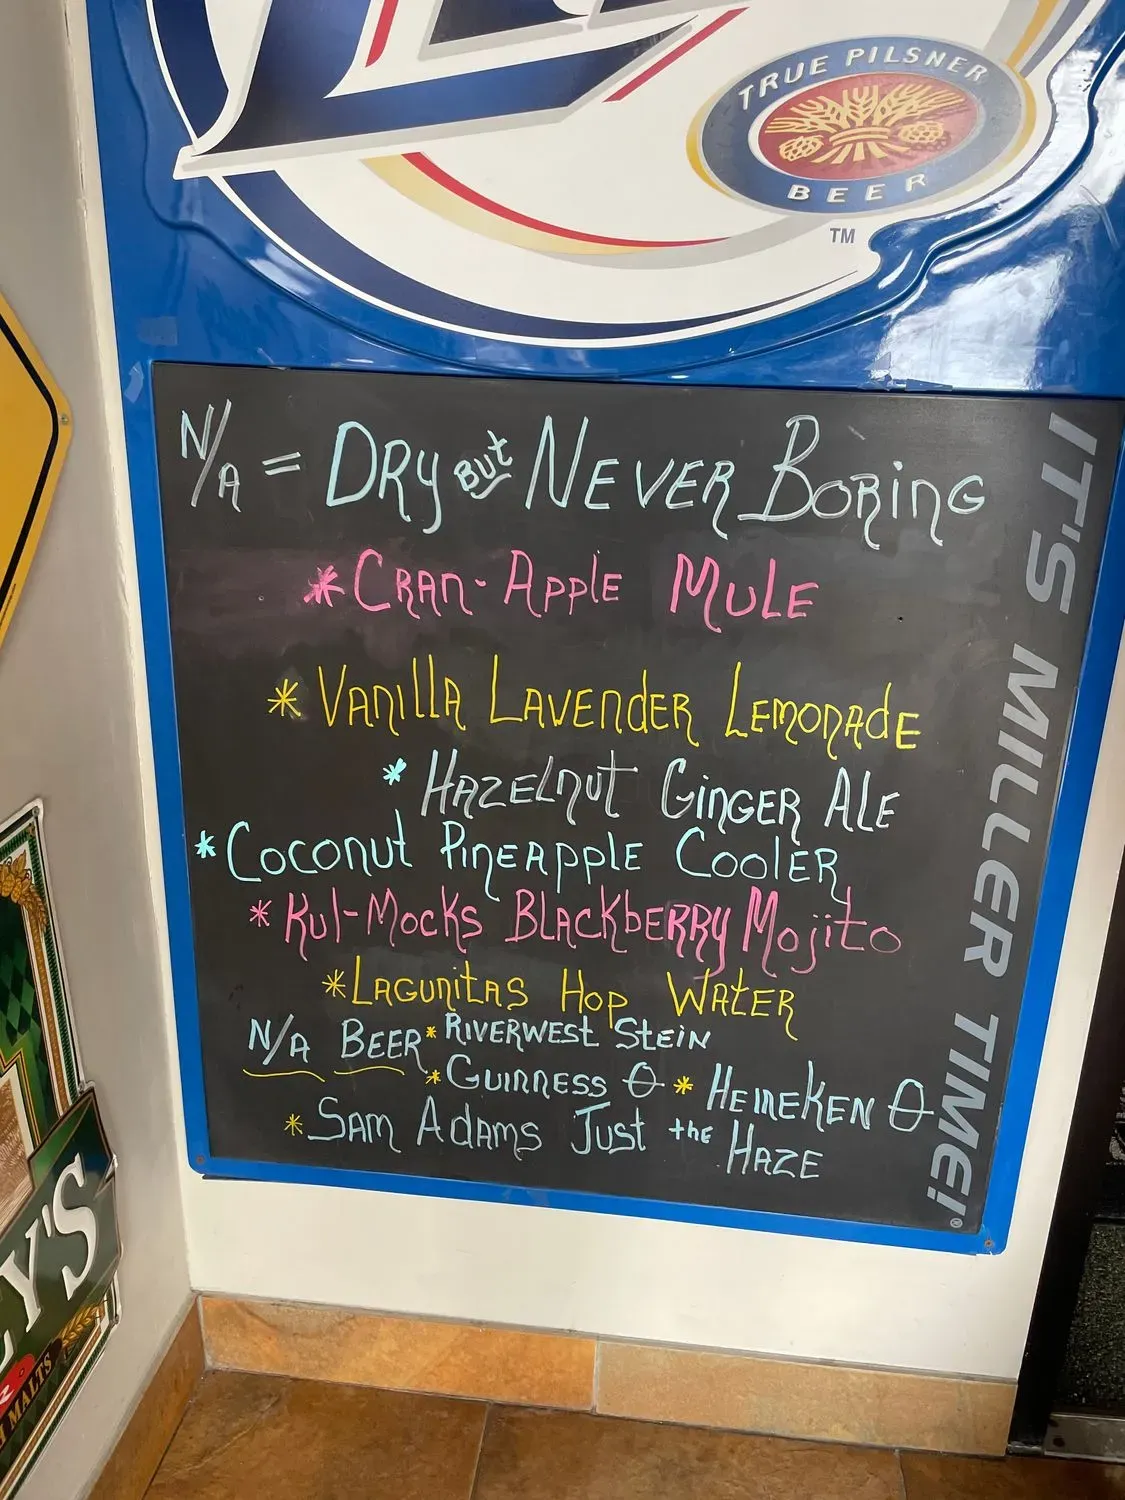 TRUE PILSNER
BEER
TM
N/A = DRY BUT NEVER BORING
*CRAN-APPLE MULE
*VANILLA LAVENDER LEMONADE
*HAZELNUT GINGER ALE
*COCONUT PINEAPPLE COOLER
*KUL-MOCKS BLACKBERRY MOJITO
*LAGUNITAS HOP WATER
N/A BEER *RIVERWEST STEIN
*GUINNESS 0 *HEINEKEN 0
*SAM ADAMS JUST the HAZE
IT'S MILLER TIME!®
Y'S
MALTS